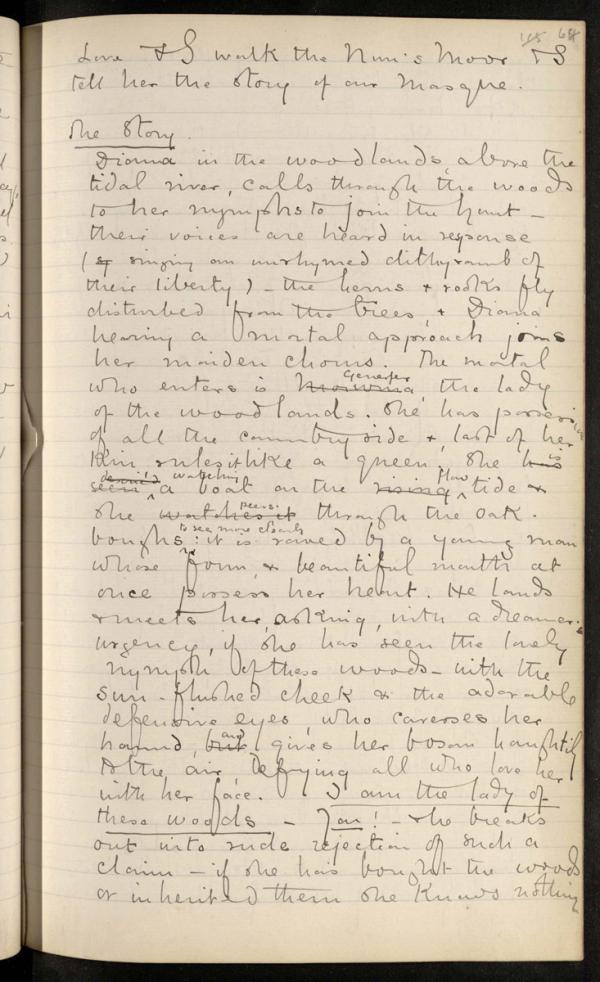 68
Love & I walk the Nun's Moor & I
tell her the story of our Masque.
The Story.
Diana in the woodlands, above the
tidal river, calls through the woods
to her nymphs to join the hunt —
their voices are heard in response
( singing an unrhymed dithyramb of
their liberty) – the herns & rooks fly
disturbed from the trees, & Diana
hearing a mortal approach joins
her maiden chorus. The mortal
Genefer
who enters is the lady
of the woodlands. She has possession
of all the country side &, last of her
Kin, rules it like a queen. She has is
descried watching flow
seen a boat on the rising tide &
peers
she watches it through the oak-
to see more closely
boughs: it is rowed by a young man
whose form, & beautiful mouth at
once possess her heart. He lands
& meets her, asking, with a dreamer's
urgency, if she has seen the lovely
nymph of these woods – with the
sun-flushed cheek & the adorable
defensive eyes, who caresses her
and
hound, but gives her bosom haughtily
to the air, defying all who love her
with her face. I am the lady of
these woods – You! – & he breaks
out into rude rejection of such a
claim – if she has bought the woods
or inherited them she knows nothing